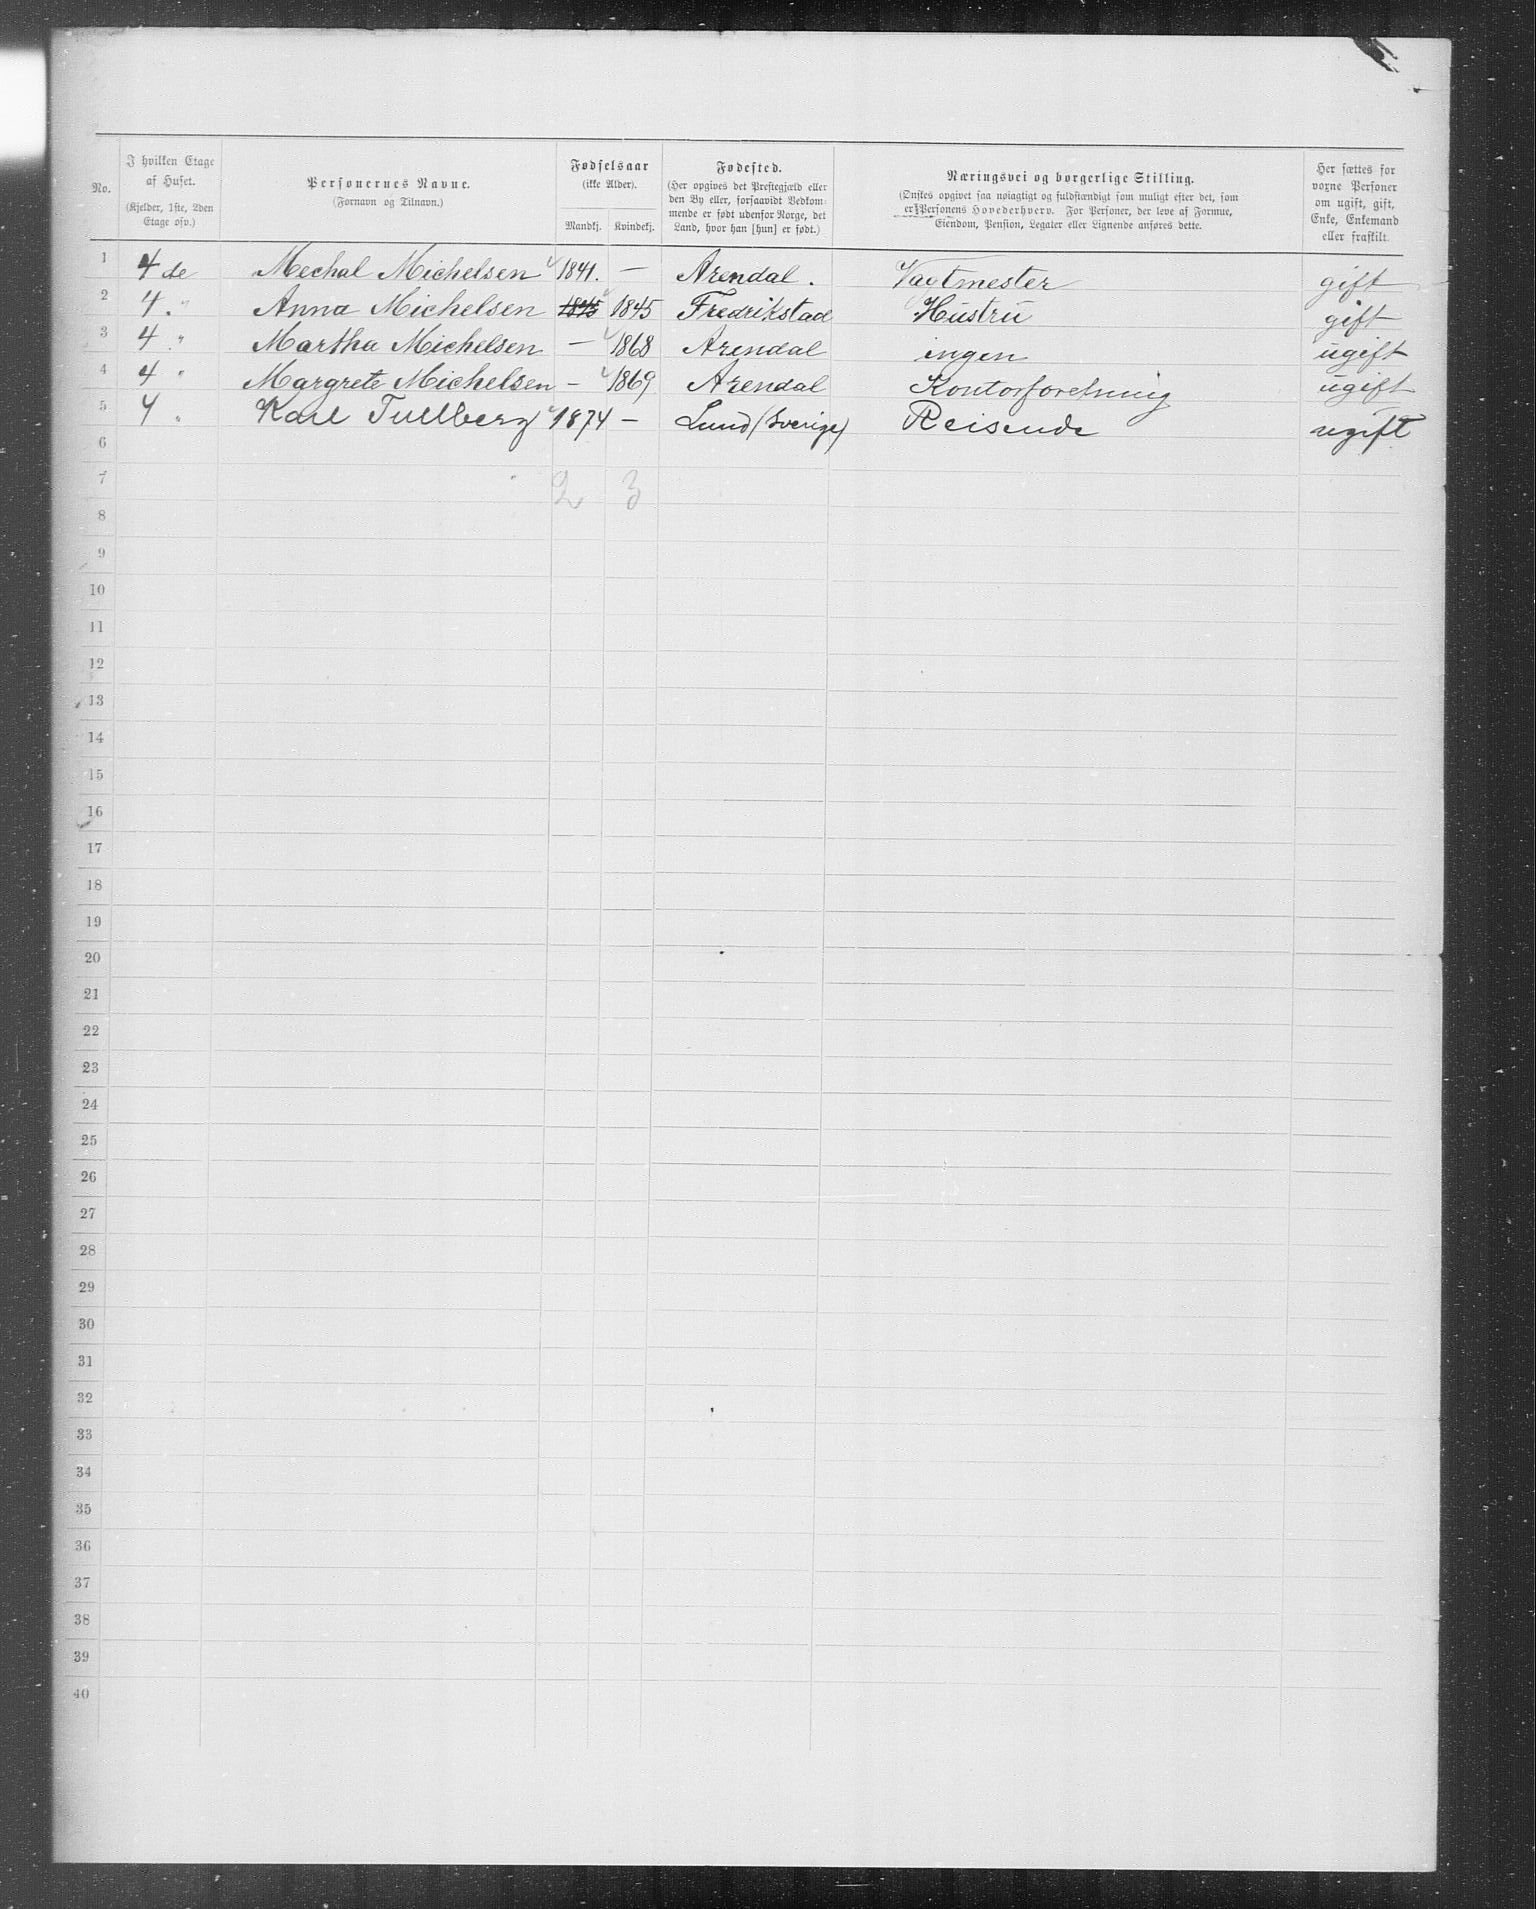 No. | I hvilken Etage af Huset. (Kjelder, 1ste, 2den Etage osv.) | Personernes Navne. (Fornavn og Tilnavn.) | Fødselsaar (ikke Alder). Mandkj. | Kvindekj. | Fødested. (Her opgives det Prestegjæld eller den By eller, forsaavidt Vedkommende er født udenfor Norge, det Land, hvor han [hun] er født.) | Næringsvei og borgerlige Stilling. (Ønskes opgivet saa nøiagtigt og fuldstændigt som muligt efter det, som er Personens Hovederhverv. For Personer, der leve af Formue, Eiendom, Pension, Legater eller Lignende anføres dette. | Her sættes for voxne Personer om ugift, gift, Enke, Enkemand eller fraskilt.
1 | 4 de | Mechal Michelsen | 1841. | — | Arendal. | Vagtmester | gift
2 | 4. " | Anna Michelsen | 1845 | 1845 | Fredrikstad | Hustru | gift
3 | 4 " | Martha Michelsen | — | 1868 | Arendal | ingen | ugift
4 | 4 " | Margrete Michelsen | - | 1869 | Arendal | Kontorforretning | ugift
5 | 4 " | Karl Tullberg | 1874 | — | Lund (Sverige) | Reisende | ugift
6
7 | 2 | 3
8
9
10
11
12
13
14
15
16
17
18
19
20
21
22
23
24
25
26
27
28
29
30
31
32
33
34
35
36
37
38
39
40